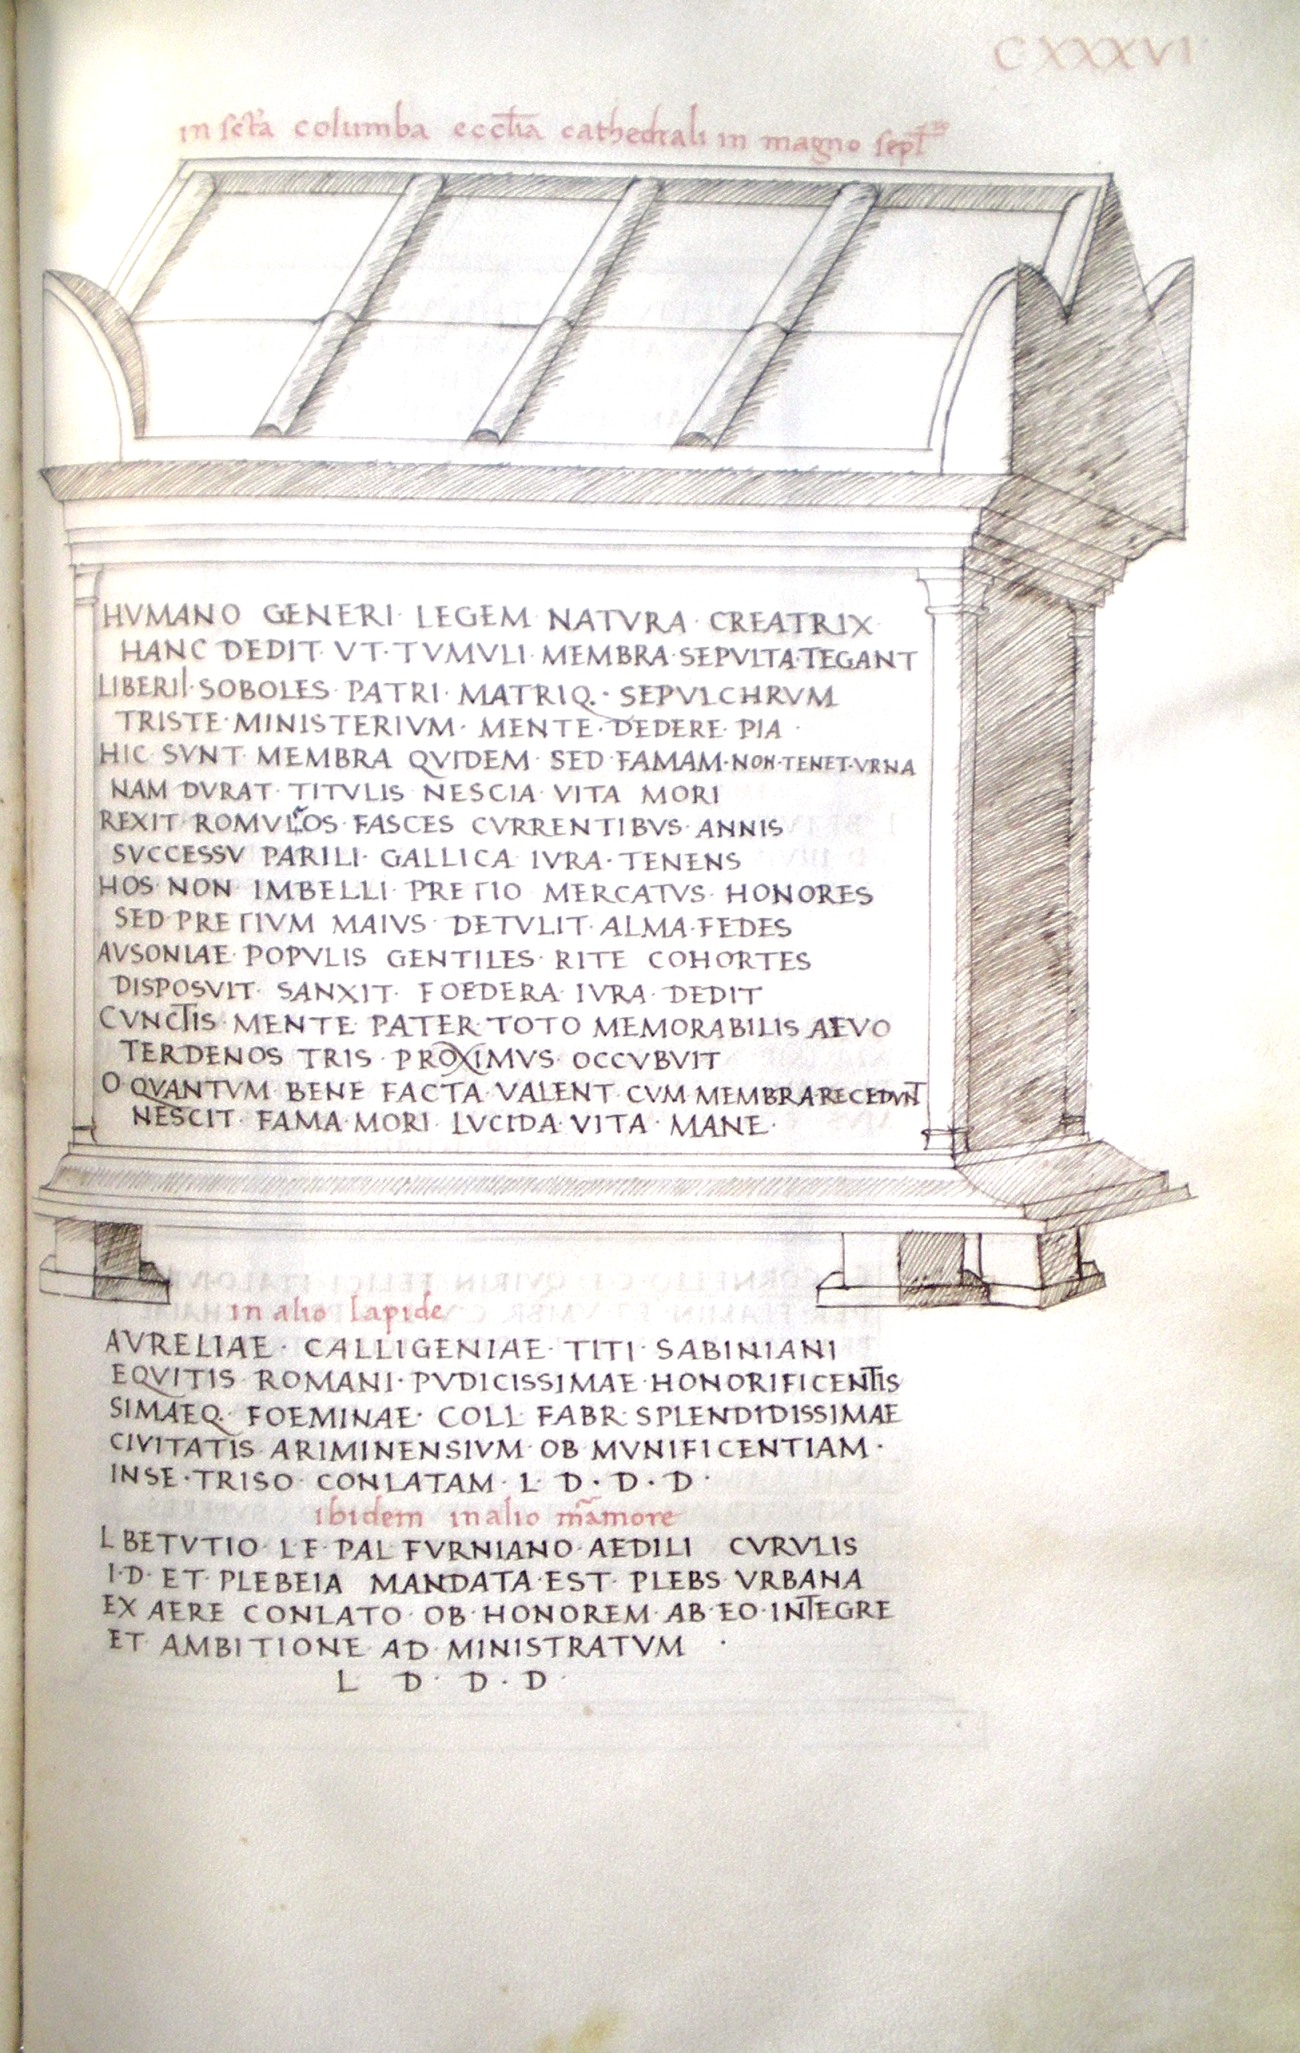 CXXXVI
in sc̄ta columba eccl̄ia cathedrali in magno
HVMANO GENERI· LEGEM· NATVRA· CREATRIX
HANC DEDIT· VT· TVMVLI· MEMBRA· SEPVLTA·TEGANT
LIBERII·SOBOLES· PATRI· MATRIQ·· SEPVLCHRVM
TRISTE· MINISTERIVM· MENTE· DEDERE· PIA ·
HIC· SVNT· MEMBRA QVIDEM· SED· FAMAM·NON·TENET·VRNA
NAM DVRAT· TITVLIS NESCIA· VITA MORI
FASCES CVRRENTIBVS· ANNIS
SVCCESSV PARILI· GALLICA IVRA· TENENS
HOS· NON· IMBELLI· PRETIO MERCATVS· HONORES
SED· PRETIVM MAIVS· DETVLIT· ALMA·FEDES
AVSONIAE· POPVLIS GENTILES· RITE COHORTES
DISPOSVIT· SANXIT· FOEDERA· IVRA· DEDIT
CVNCTIS· MENTE· PATER· TOTO MEMORABILIS AEVO
TERDENOS TRIS· PROXIMVS· OCCVBVIT
O QVANTVM BENE FACTA· VALENT· CVM MEMBRA·RECEDVNT
NESCIT· FAMA· MORI· LVCIDA· VITA· MANE·
in alio lapide
AVRELIAE· CALLIGENIAE· TITI· SABINIANI
EQVITIS ROMANI· PVDICISSIMAE· HONORIFICENTIS
SIMAEQ· FOEMINAE· COLL· FABR· SPLENDIDISSIMAE
CIVITATIS ARIMINENSIVM· OB MVNIFICENTIAM·
INSE·TRISO· CONLATAM· L· D· D· D·
ibidem in alio m̄amore
L BETVTIO· L·F· PAL FVRNIANO· AEDILI CVRVLIS
I·D· ET· PLEBEIA MANDATA·EST· PLEBS· VRBANA
EX AERE CONLATO· OB· HONOREM· AB·EO·INTEGRE
ET· AMBITIONE AD· MINISTRATVM ·
L D· D· D·